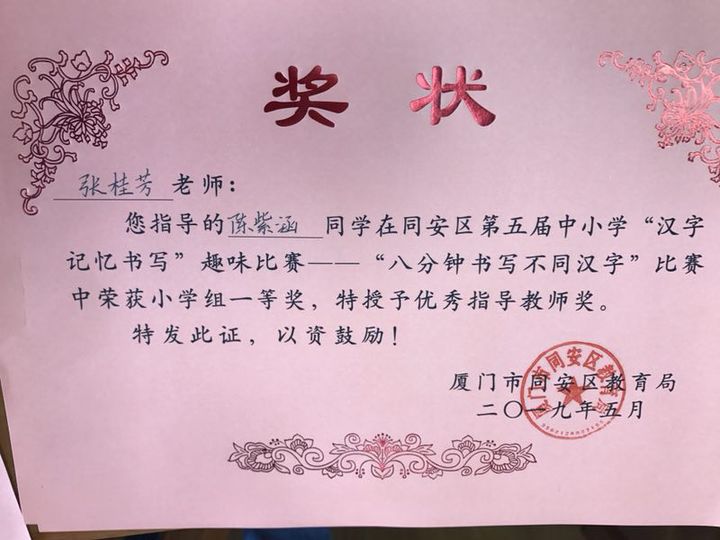 奖状
张桂芳老师：
您指导的陈紫涵同学在同安区第五届中小学“汉字
记忆书写”趣味比赛——“八分钟书写不同汉字”比赛
中荣获小学组一等奖，特授予优秀指导教师奖。
特发此证，以资鼓励！
厦门市同安区教育局
二〇一九年五月
厦门市同安区教育局